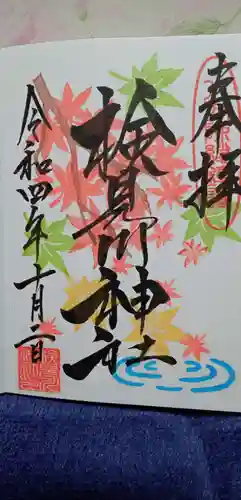 奉拝
検見川神社
令和四年十月二日